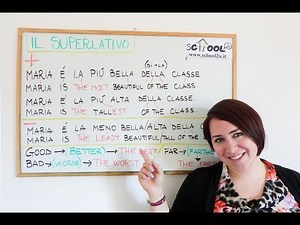 IL SUPERLATIVO
SCHOOL
www.school2u.it
+
(DI+LA)
MARIA È LA PIÙ BELLA DELLA CLASSE
MARIA IS THE MOST BEAUTIFUL OF THE CLASS
MARIA È LA PIÙ ALTA DELLA CLASSE
MARIA IS THE TALLEST OF THE CLASS
-
MARIA È LA MENO BELLA/ALTA DELLA C
MARIA IS THE LEAST BEAUTIFUL/TALL OF THE
GOOD → BETTER → THE BEST/ FAR → FARTHER
BAD → WORSE → THE WORST THE